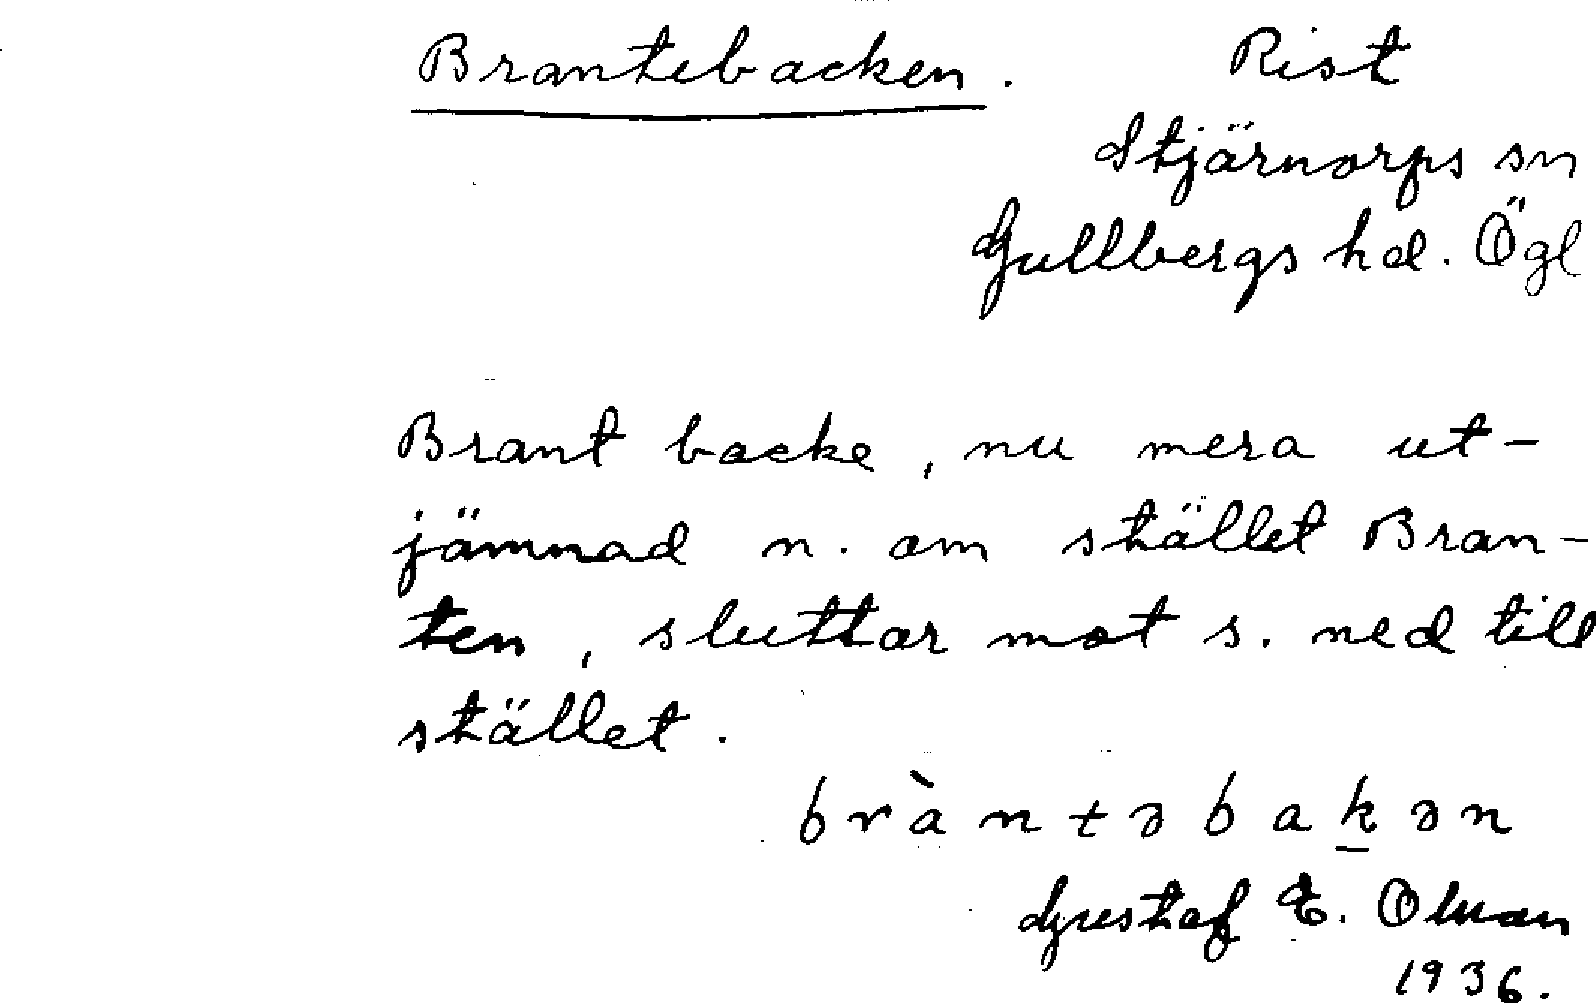 Brantebacken. Rist
Stjärnorps sn
Gullbergs hd. Ögl
Brant backe, nu mera ut-
jämnad n. om stället Bran-
ten, sluttar mot s. ned till
stället.
bràntəbak̲ən
Gustaf E. Olman
1936.